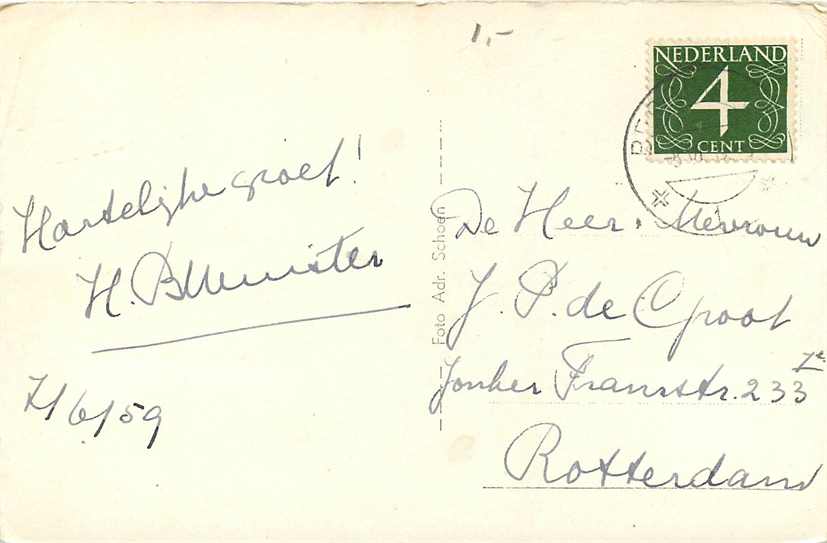 1,-
NEDERLAND
4
CENT
Hartelijke groet!
H.
7/6/59
Foto Adr. Schoen
De Heer, Mevrouw
J. P. de Groot
Jonker Fransstr. 233
Rotterdam